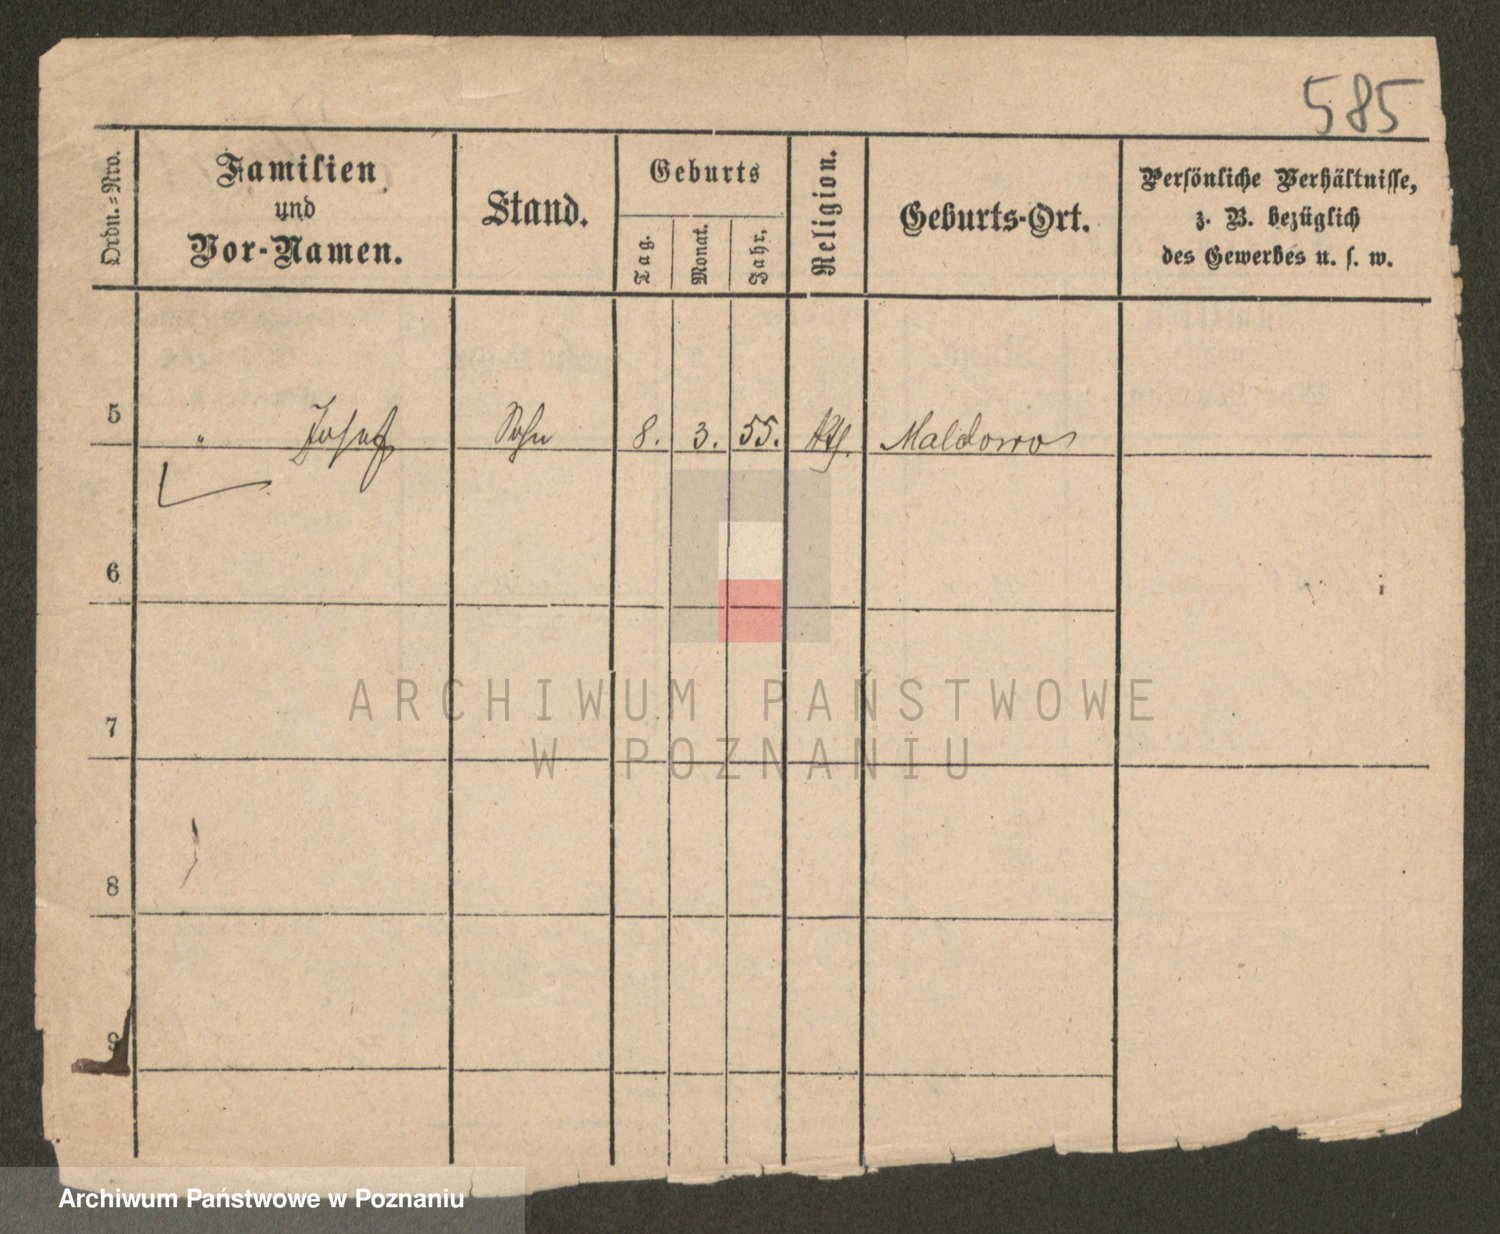 585
Ordn.-Nro.
Familien
und
Vor-Namen.
Stand.
Geburts
Tag.
Monat.
Jahr.
Religion.
Geburts-Ort.
Persönliche Verhältnisse,
z. B. bezüglich
des Gewerbes u. s. w.
5 " Josef Sohn 8. 3. 55. kth. Maldowo
6
7
8
9
ARCHIWUM PAŃSTWOWE
W POZNANIU
Archiwum Państwowe w Poznaniu